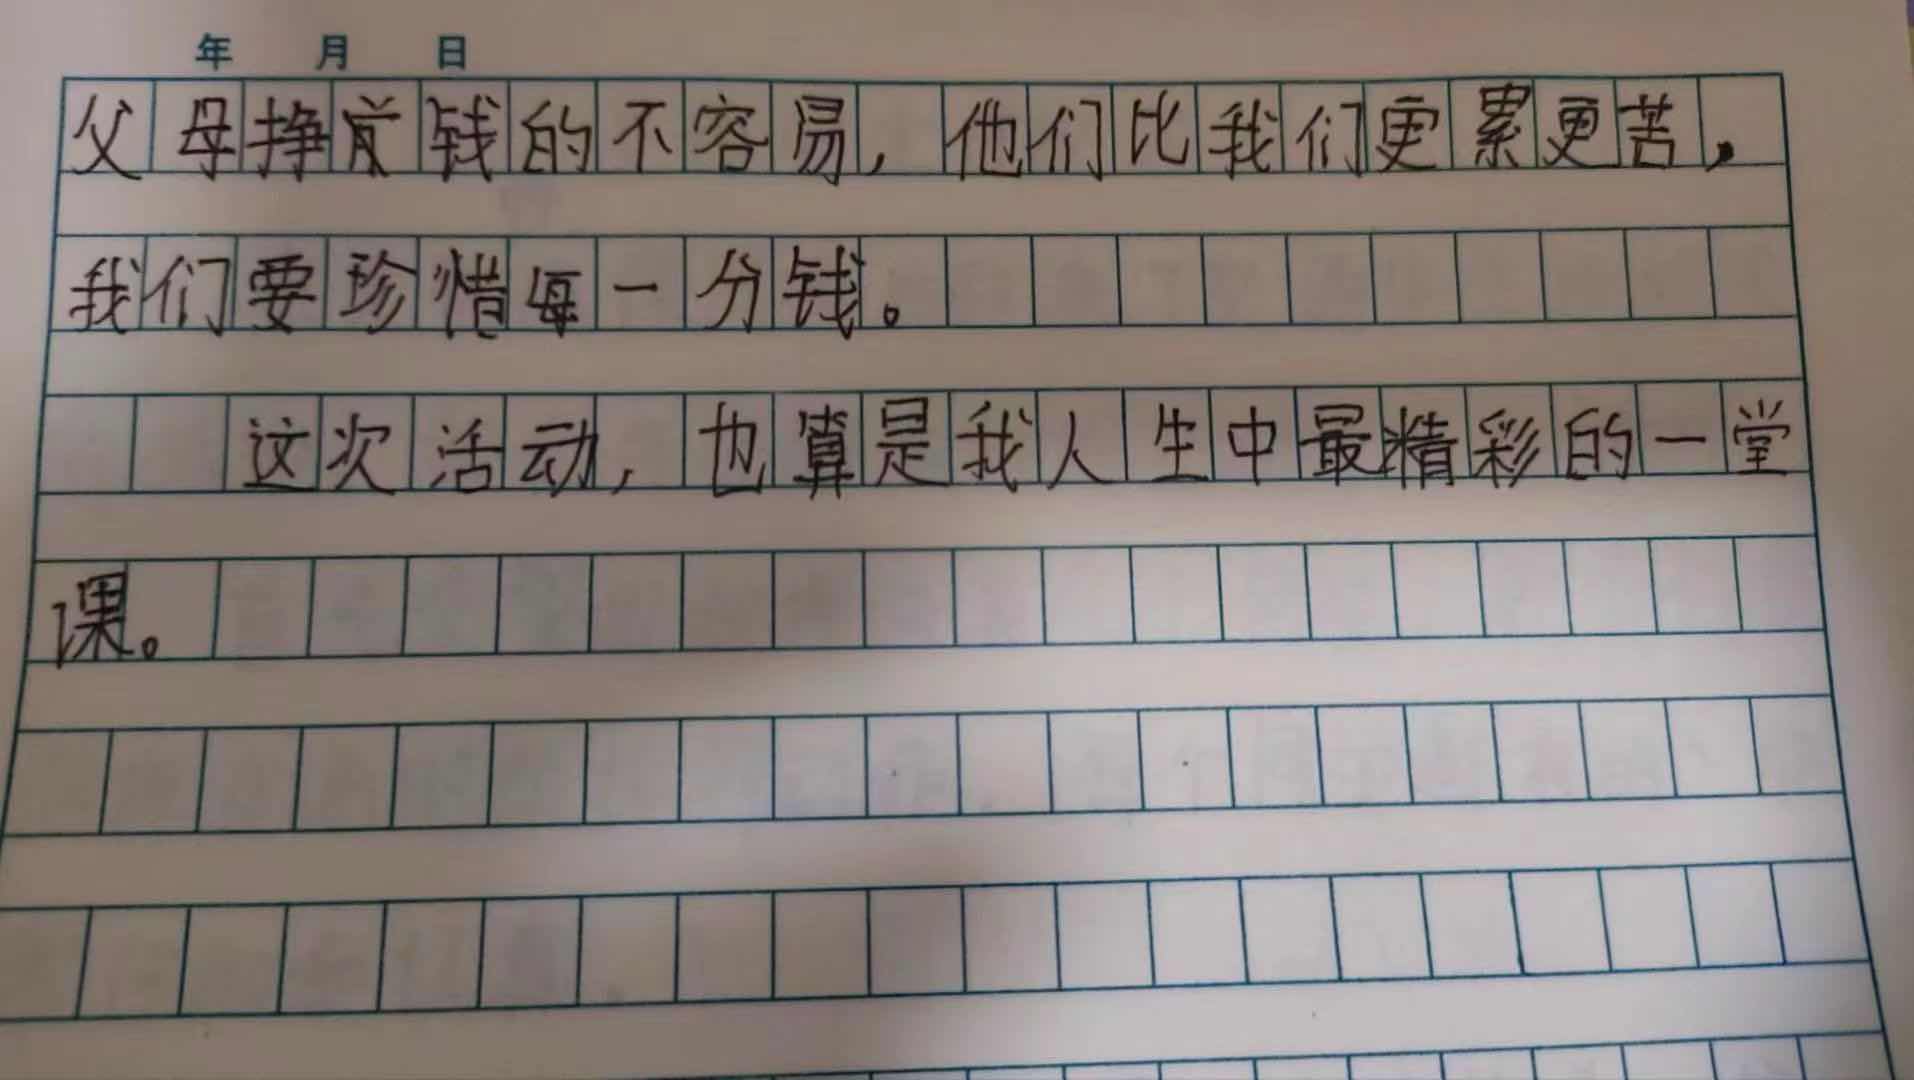 年 月 日
父母挣钱的不容易，他们比我们更累更苦，
我们要珍惜每一分钱。
这次活动，也算是我人生中最精彩的一堂
课。